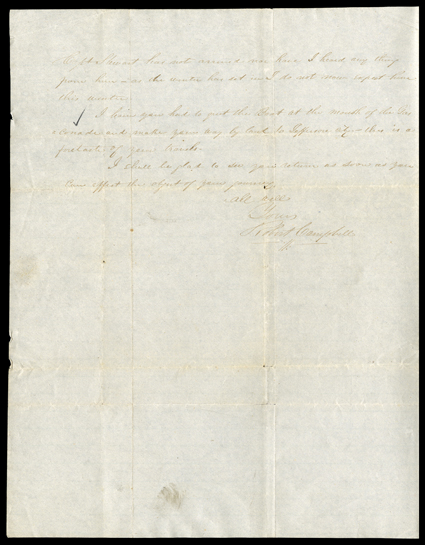 has not arrived nor have I heard any thing
from him as the winter has set in I do not now expect him
this winter
I hope you had to put the Boat at the mouth of the
and make your way by land to Jefferson City this is a
of your
I shall be glad to see you return as soon as you
can effect the object of your journey
All well
Yours
Robert Campbell